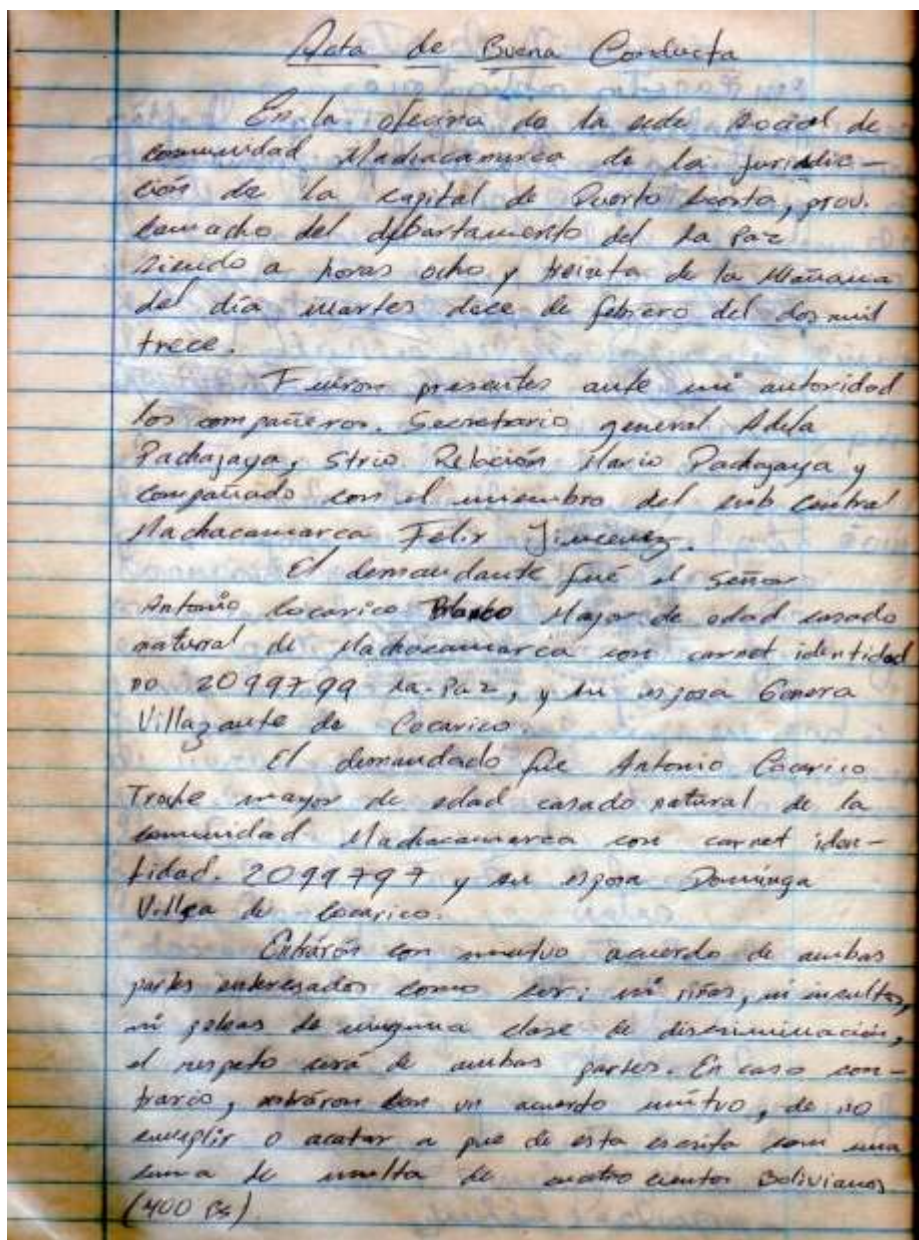 Acta de Buena Conducta
En la oficina de la sede social de
comunidad Machacamarca de la jurisdic-
ción de la capital de Puerto Acosta, prov.
Camacho del departamento del La Paz
siendo a horas ocho y treinta de la Mañana
del día martes doce de febrero del dos mil
trece.
Fuiron presentes ante mi autoridad
los compañeros. Secretario general Adela
Pachajaya, Strio Relación Mario Pachajaya y
compañado con el miembro del sub central
Machacamarca Felix Jimenez.
El demandante fué el señor
Antonio Cocarico Blanco Mayor de edad casado
natural de Machacamarca con carnet identidad
no 2099799 La-Paz, y su esposa Genera
Villazante de Cocarico.
El demandado fue Antonio Cocarico
mayor de edad casado natural de la
comunidad Machacamarca con carnet iden-
tidad. 2099797 y su esposa Dominga
Villca de Cocarico.
Entrarón con mutuo acuerdo de ambas
partes enteresados como ser: ni riñas, ni insultos,
ni peleas de ninguna clase de discriminación,
el respeto será de ambas partes. En caso con-
trario, entrarón con un acuerdo mutuo, de no
cumplir o acatar a que de esta escrito con una
suma de multa de cuatro cientos Bolivianos
(400 Bs).